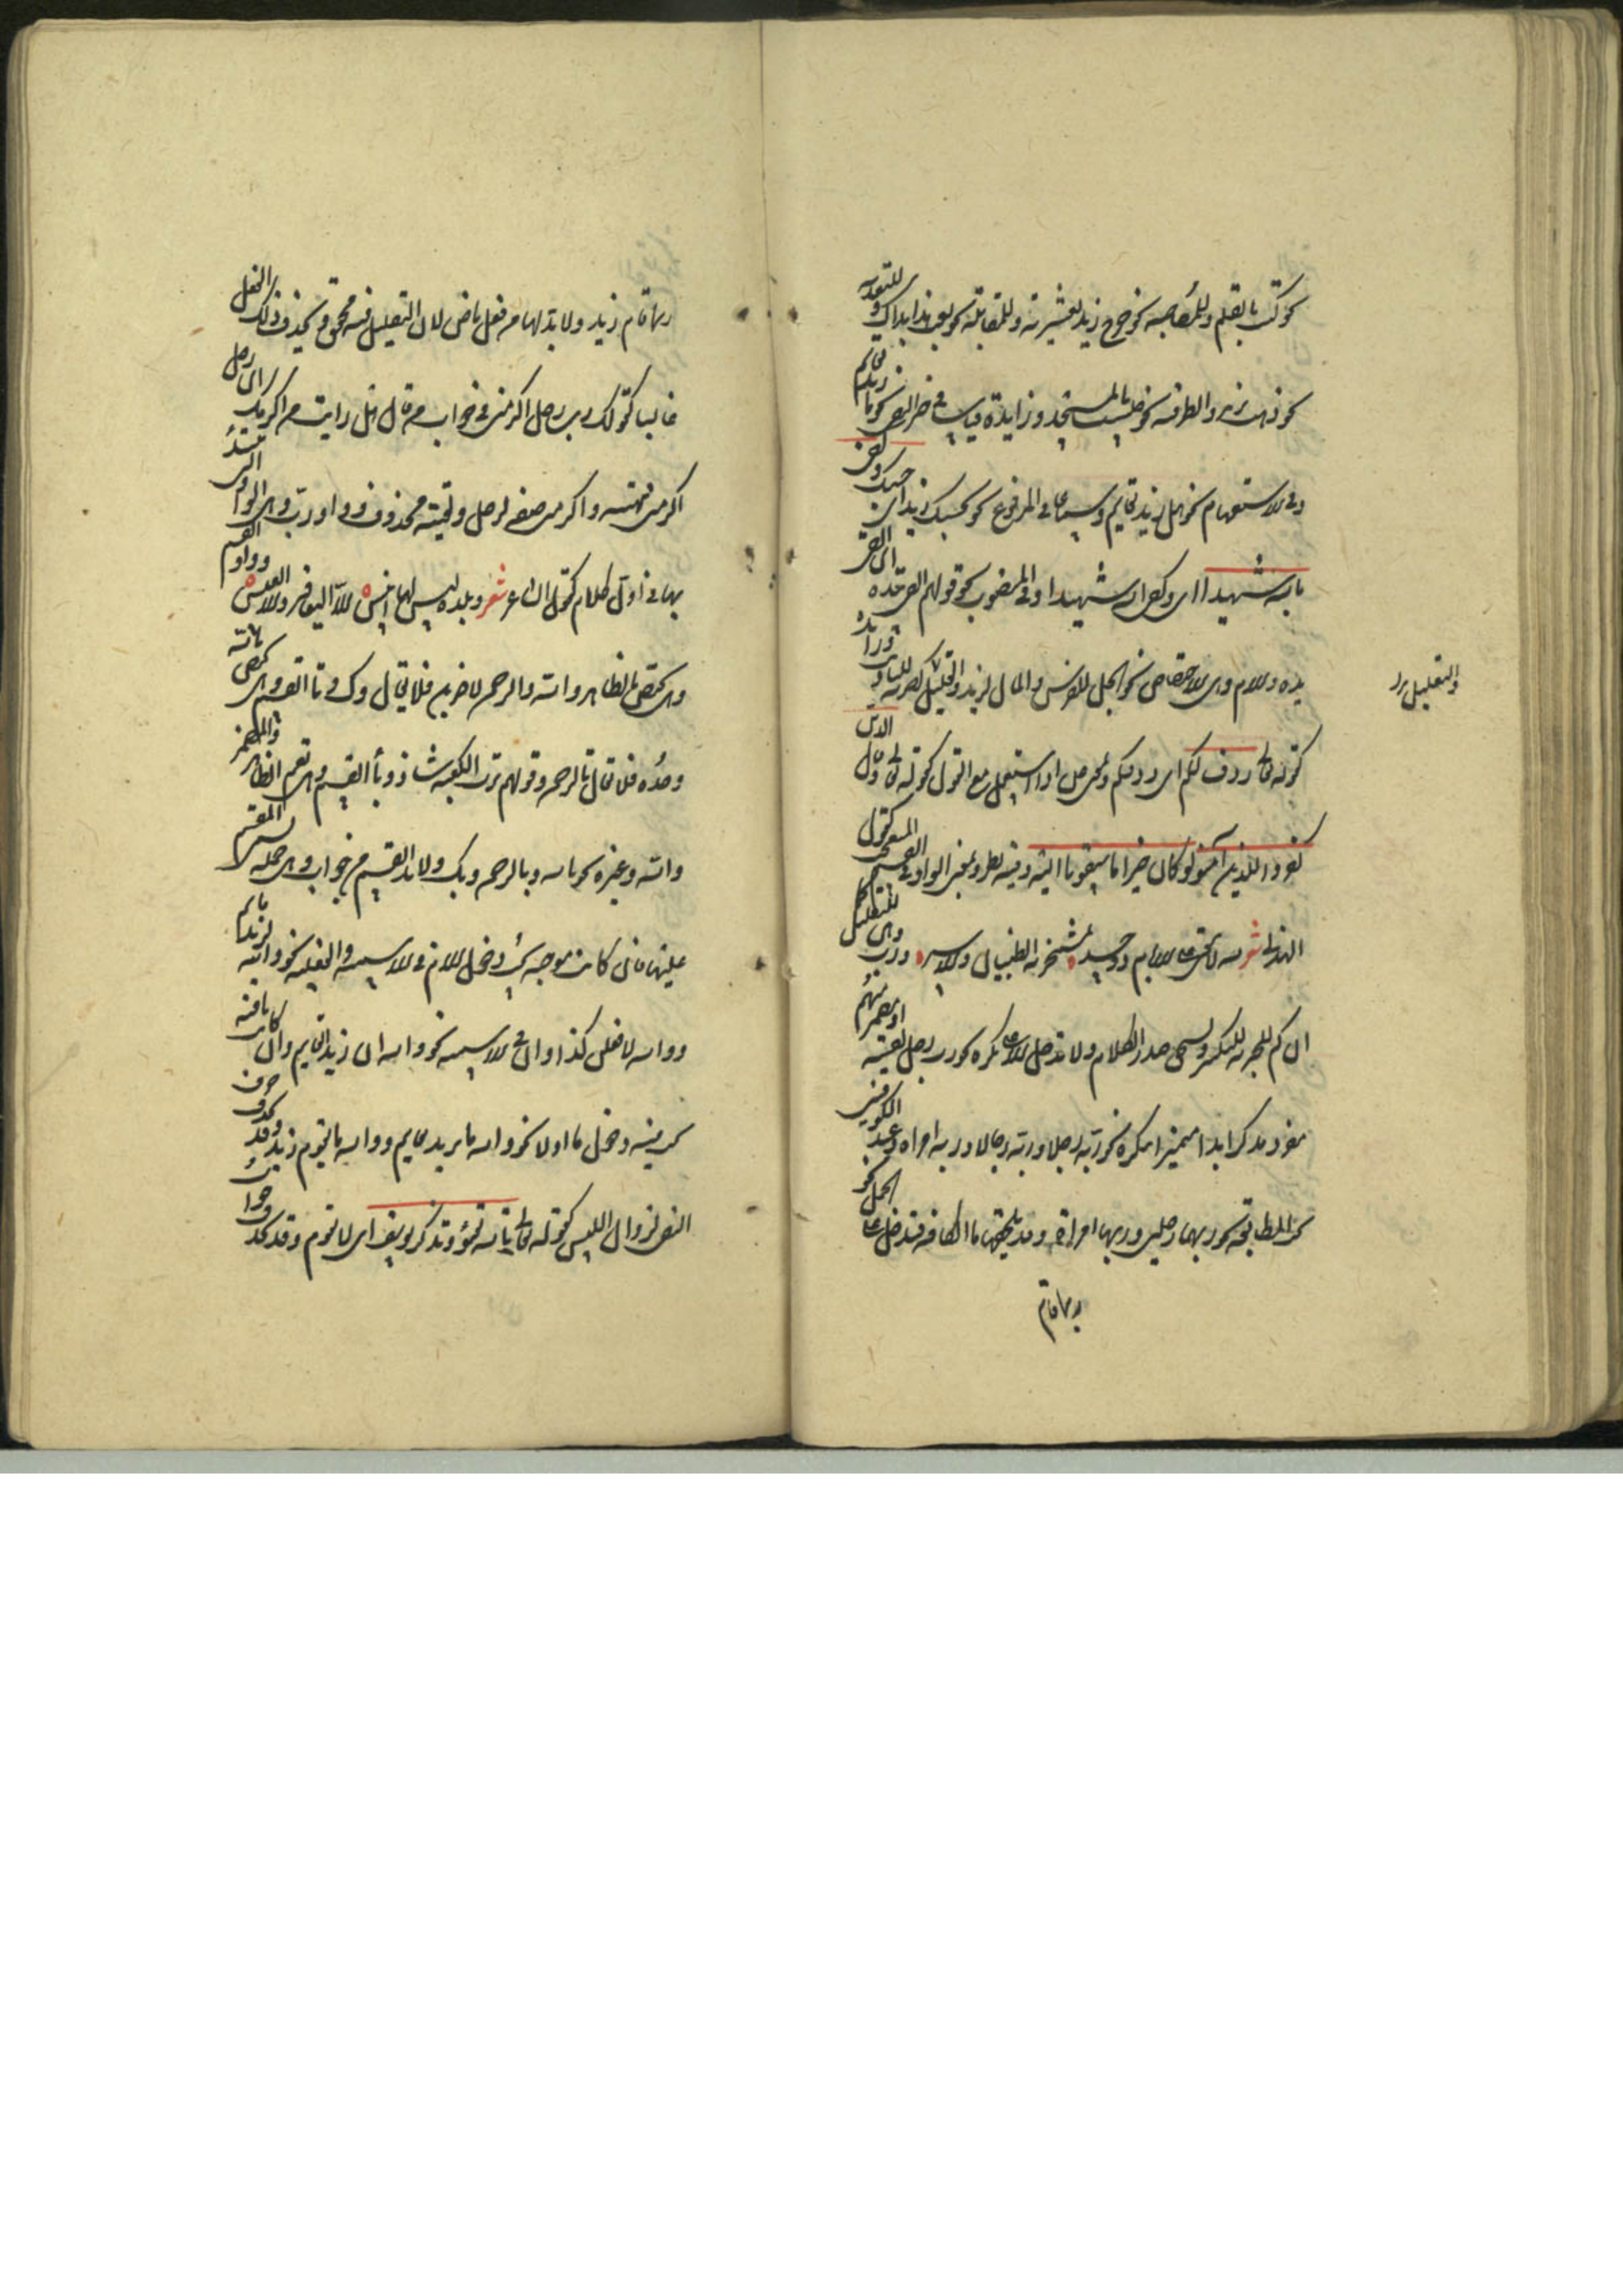 نحو كتبت بالقلم وللمصاحبة نحو خرج زيد بعشيرته وللمقابلة نحو بعت هذا بذاك وللتعدية
نحو ذهبت بزيد وللظرفية نحو جلست بالمسجد وزايدة قياسا في خبر النفي نحو ما زيد بقايم
وفي الاستفهام نحو هل زيد بقايم وسماعا في المرفوع نحو بحسبك زيد اي حسبك وكفى
بالله شهيدا اي وكفى الله شهيدا وفي المنصوب نحو قولهم القى بيده اي القى
يده واللام وهي للاختصاص نحو الجل للفرس والمال لزيد والتعليل نحو ضربته للتاديب وزايدة
والتعليل
كقوله تعالى ردف لكم اي ردفكم وبمعنى عن اذا استعمل مع القول كقوله تعالى وقال الذين
كفروا للذين آمنوا لو كان خيرا ما سبقونا اليه وفيه نظر وبمعنى الواو في القسم للتعجب كقول
الهذلي شعر لله لا يبقى على الايام ذو حيد بمشمخر به الظيان والاس ورب وهي للتقليل كما
ان كم الخبرية للتكثير وتستحق صدر الكلام ولا تدخل الا على نكرة نحو رب رجل لقيته او مضمر مبهم
مفرد مذكر ابدا مميزا بنكرة نحو ربه رجلا وربه رجالا وربه امراة وعند الكوفيين
تجب المطابقة نحو ربهما رجلين وربها امراة وقد يلحقها ما الكافة فتدخل على الجمل نحو
ربما قام
ربما قام زيد ولا بد لها من فعل ماض لان التقليل فيه محقق ويحذف ذلك الفعل
غالبا كقولك رب رجل اكرمني في جواب من قال هل رايت من اكرمك اي رب رجل
اكرمني لقيته واكرمني صفة لرجل ولقيته محذوف وواو رب وهي الواو التي تبتدئ
بها في اول كلام كقول الشاعر شعر وبلدة ليس لها انيس الا اليعافير والا العيس وواو القسم
وهي تختص بالظاهر والله والرحمن لاضربن فلا يقال وك وتا القسم وهي تختص بالله
وحده فلا يقال تالرحمن وقولهم ترب الكعبة شاذ وبا القسم وهي تعم الظاهر والمضمر
والله وغيره نحو بالله وبالرحمن وبك ولا بد للقسم من جواب وهي جملة تسمى المقسم
عليها فان كانت موجبة يجب دخول اللام في الاسمية والفعلية نحو والله لزيد قايم
ووالله لافعلن كذا وان في الاسمية نحو والله ان زيدا لقايم وان كانت نافية
تجب فيه دخول ما او لا نحو والله ما زيد بقايم ووالله ما يقوم زيد وقد يحذف حرف
النفي لزوال اللبس كقوله تعالى تالله تفتؤ تذكر يوسف اي لا تفتؤ وقد يحذف جواب